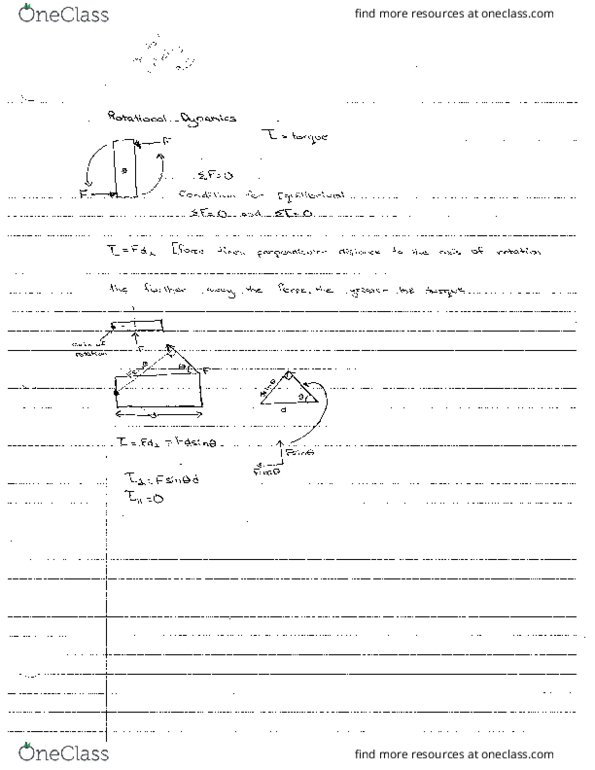 OneClass
find more resources at oneclass.com
Rotational Dynamics
τ = torque
F
F
ΣF=0
Condition for Equilibrium
ΣF=0 and Στ=0
τ = Fd⊥ [force times perpendicular distance to the axis of rotation
the further away the force, the greater the torque
axis of rotation
F
θ
F
d
θ
d
τ = Fd⊥ = Fdsinθ
Fsinθ
τ⊥ = Fsinθd
τ∥ = 0
OneClass
find more resources at oneclass.com